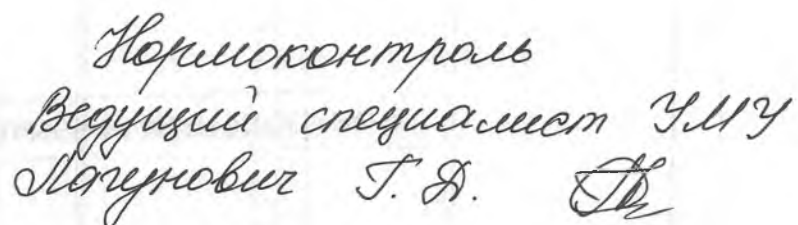 Нормоконтроль
Ведущий специалист УМУ
Лагунович Г. Д.